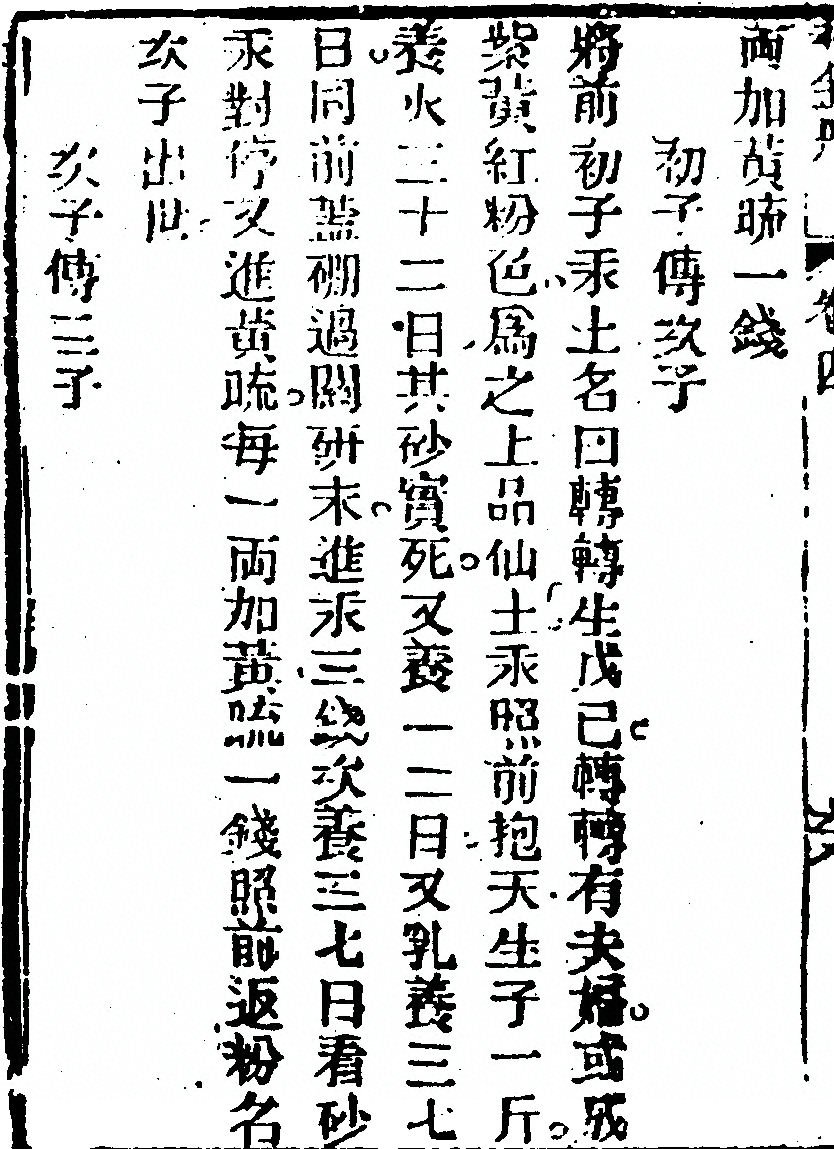 両加黄硫一錢
初子傳次子
將前初子汞土名曰轉轉生戊己轉轉有夫婦或成
紫黄紅粉色爲之上品仙土汞照前抱天生子一斤
養火三十二日其砂實死又養一二日又乳養三七
日同前蓋硼過關研末進汞三綫次養三七日看砂
汞對停又進黄硫每一両加黄硫一錢照前返粉名
次子出世
次子傳三子